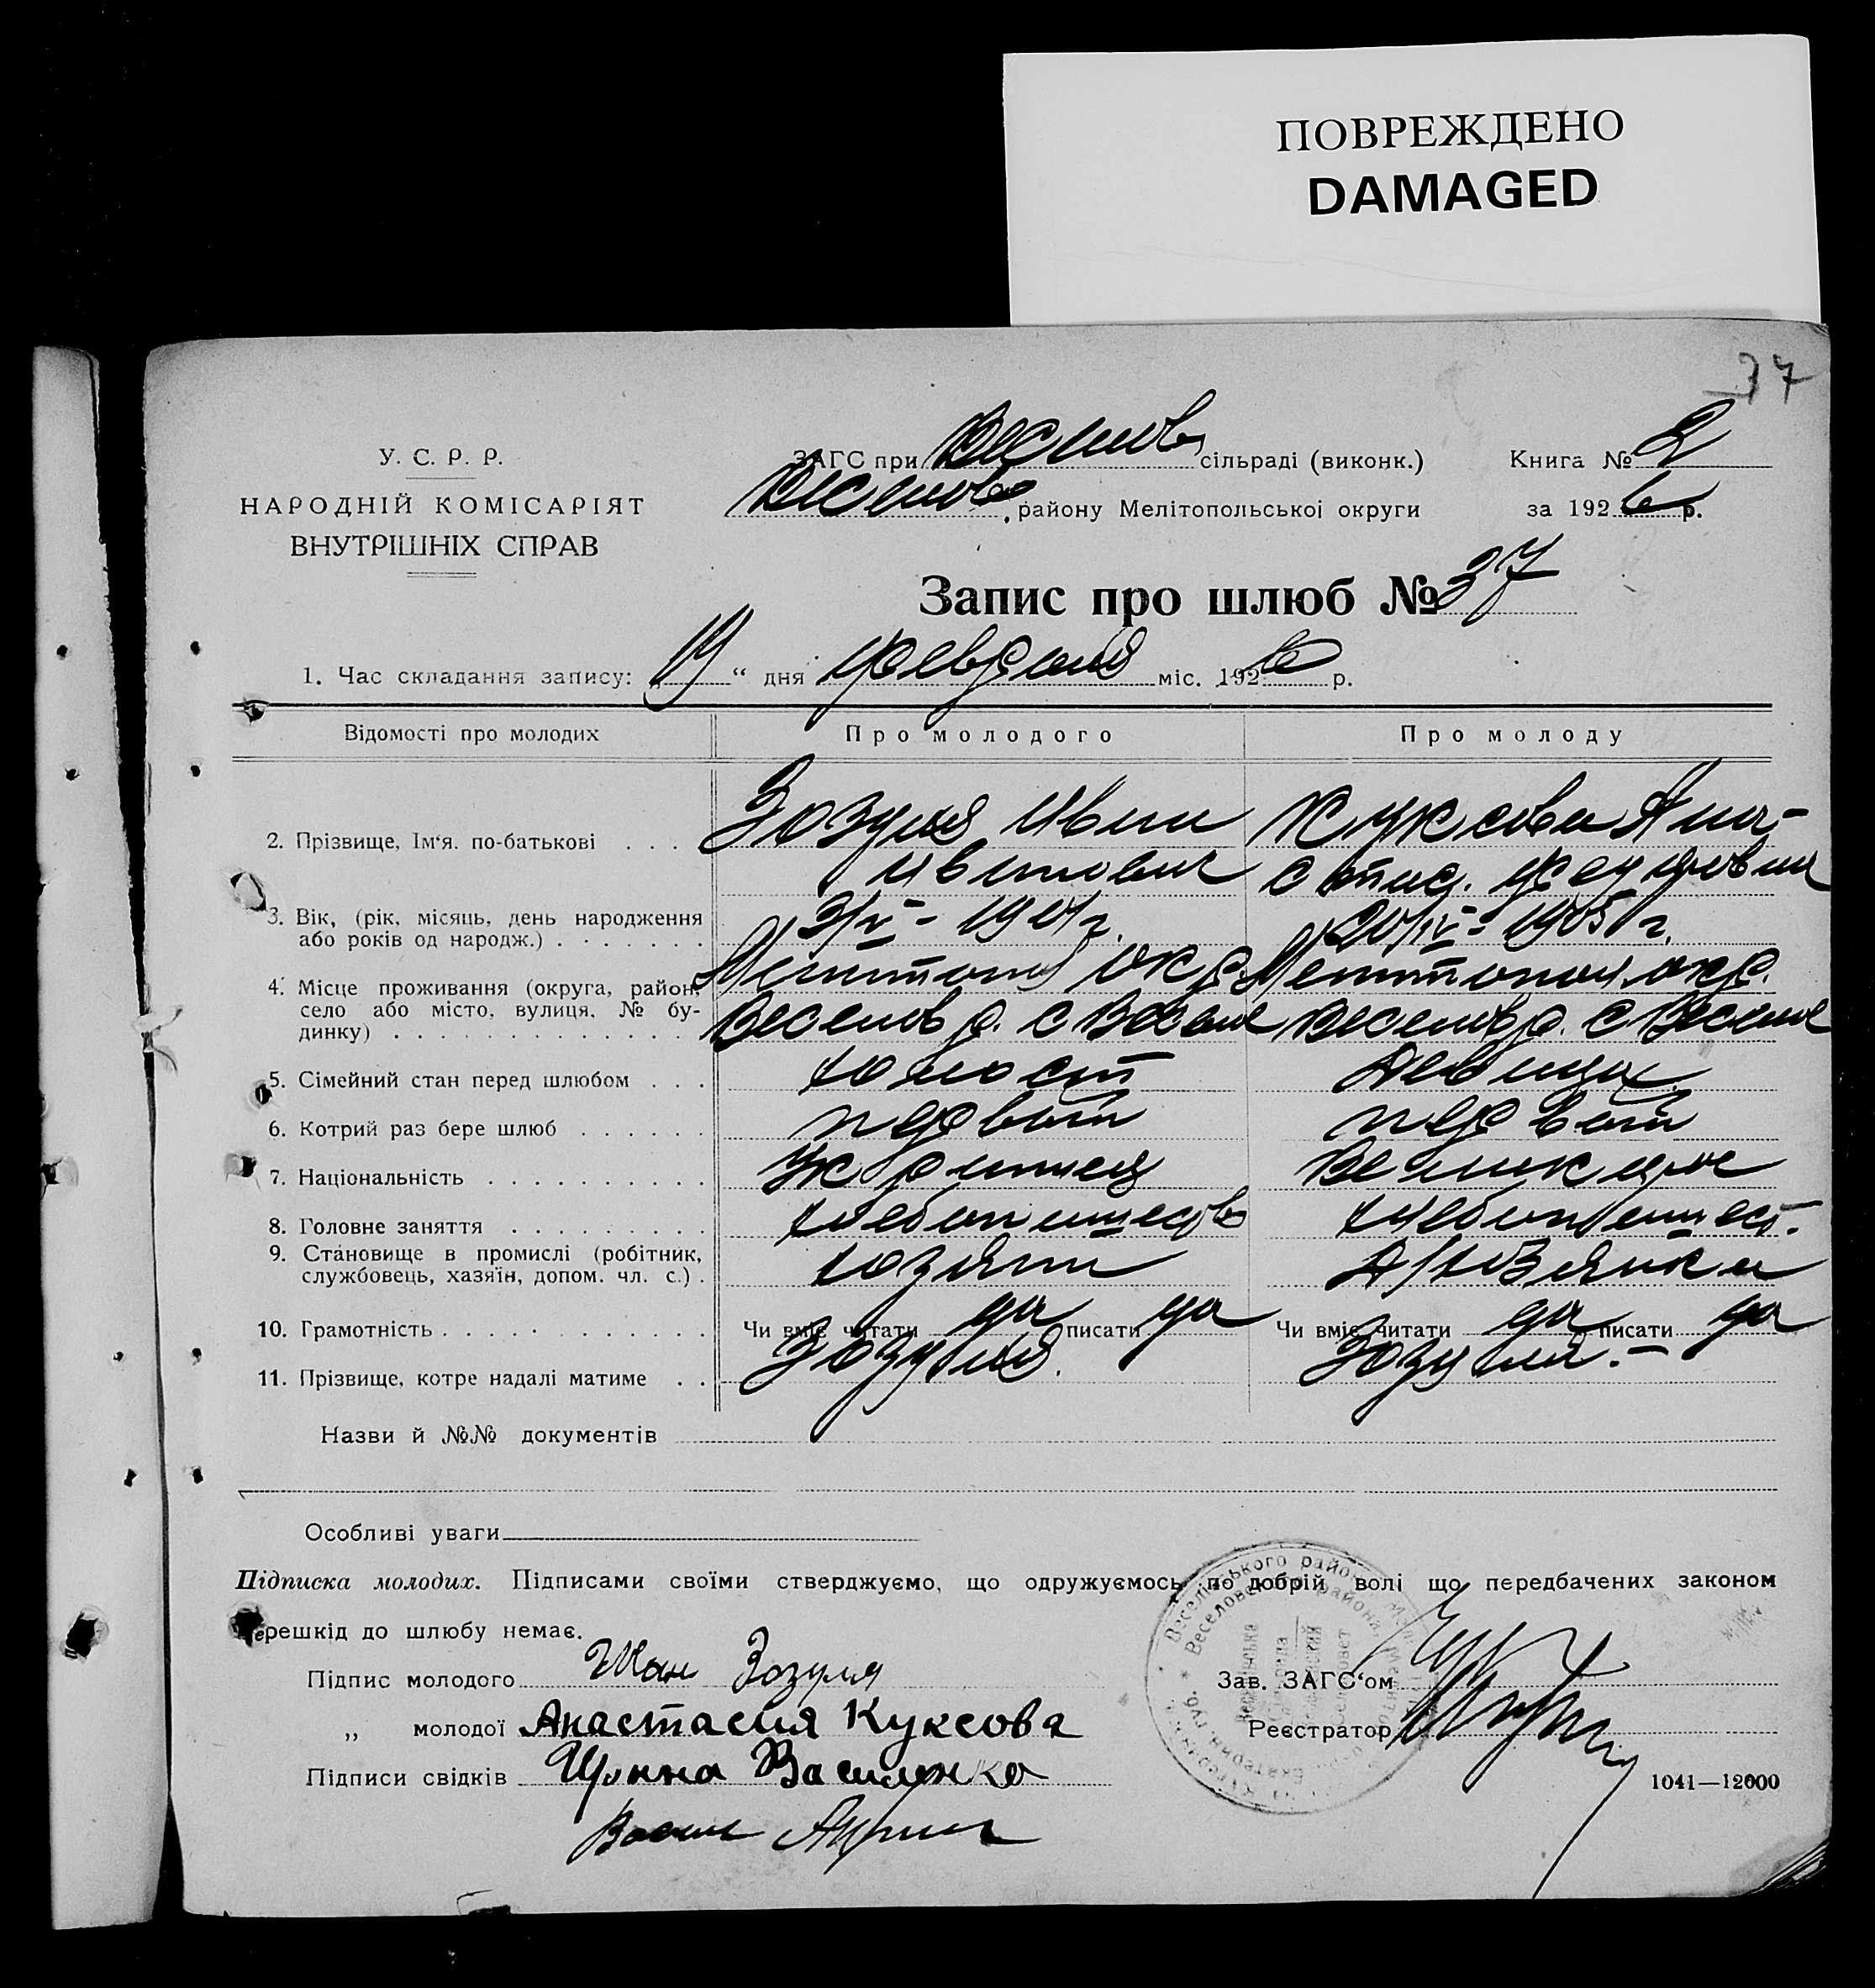 ПОВРЕЖДЕНО
DAMAGED
37
У. С. Р. Р.
НАРОДНІЙ КОМІСАРІЯТ
ВНУТРІШНІХ СПРАВ
ЗАГС при Веселов сільраді (виконк.)
Веселов району Мелітопольської округи
Книга № 2
за 1926 р.
Запис про шлюб № 37
1. Час складання запису: „ “ дня февраля міс. 1926 р.
Відомості про молодих
Про молодого
Про молоду
2. Прізвище, Ім'я. по-батькові . . . .
Зозуля Иван
Иванович
Куксова Ана-
стас. Федоровна
3. Вік, (рік, місяць, день народження
або років од народж.) . . . . . . .
1901 г.
20/IV - 1905 г.
4. Місце проживання (округа, район,
село або місто, вулиця, № бу-
динку) . . . . . . . . . . . . .
Мелитопол окр.
Веселов р. с Веселое
Мелитопол окр.
Веселов р. с Веселое
5. Сімейний стан перед шлюбом . . .
холост
девица
6. Котрий раз бере шлюб . . . . . .
первый
первый
7. Національність . . . . . . . . . .
Украинец
Великорос
8. Головне заняття . . . . . . . . .
хлебопашество
хлебопашест.
9. Становище в промислі (робітник,
службовець, хазяїн, допом. чл. с.) .
хозяин
10. Грамотність . . . . . . . . . . . .
Чи вміє читати да писати да
Чи вміє читати да писати да
11. Прізвище, котре надалі матиме . .
Зозуля.
Зозуля. –
Назви й №№ документів
Особливі уваги
Підписка молодих. Підписами своїми стверджуємо, що одружуємось по добрій волі що передбачених законом
перешкід до шлюбу немає.
Підпис молодого Иван Зозуля
„ молодої Анастасия Куксова
Підписи свідків Василенко
Зав. ЗАГС'ом
Реєстратор
1041—12000